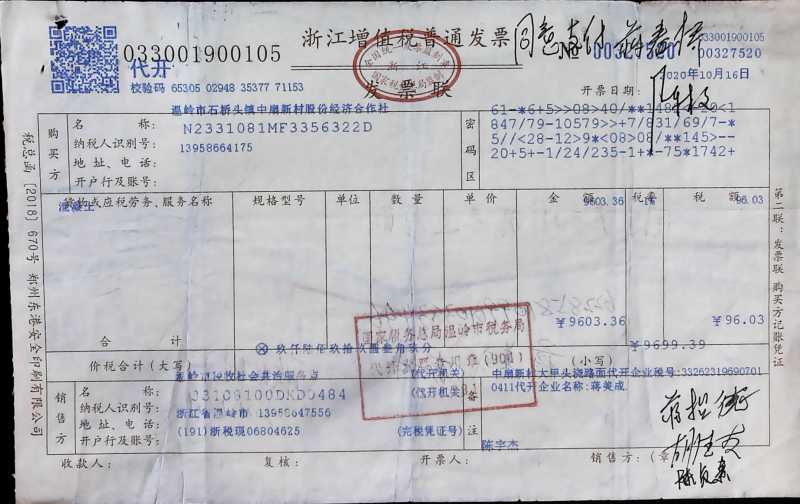 033001900105
浙江增值税普通发票
代开
校验码 65305 02948 35377 71153
发票联
同意支付
№ 00327520
033001900105
00327520
开票日期：
2020年10月16日
购买方
名 称：
温岭市石桥头镇中扇新村股份经济合作社
纳税人识别号：
N2331081MF3356322D
地址、电话：
13958664175
开户行及账号：
密码区
847/79-10579>>+7/831/69/7-*
5//<28-12>9*<08>08/**145>--
20+5+-1/24/235-1+*-75*1742+
货物或应税劳务、服务名称
规格型号
单位
数量
单价
金额
税率
税额
混凝土
9603.36
1%
96.03
合计
￥9603.36
￥96.03
价税合计（大写）
ⓧ 玖仟陆佰玖拾玖圆叁角玖分
（小写）
￥9699.39
国家税务总局温岭市税务局
销售方
名 称：
（代开机关）
纳税人识别号：
（代开机关）
地址、电话：
浙江省温岭市
开户行及账号：
(191)浙税现06804625
（完税凭证号）
备注
中扇新村大甲头浇路面代开企业税号:33262319690701
0411代开企业名称:蒋美成
陈宇杰
收款人：
复核：
开票人：
销售方：（章）
税总函〔2018〕670号 郑州东港安全印刷有限公司
第二联：发票联 购买方记账凭证